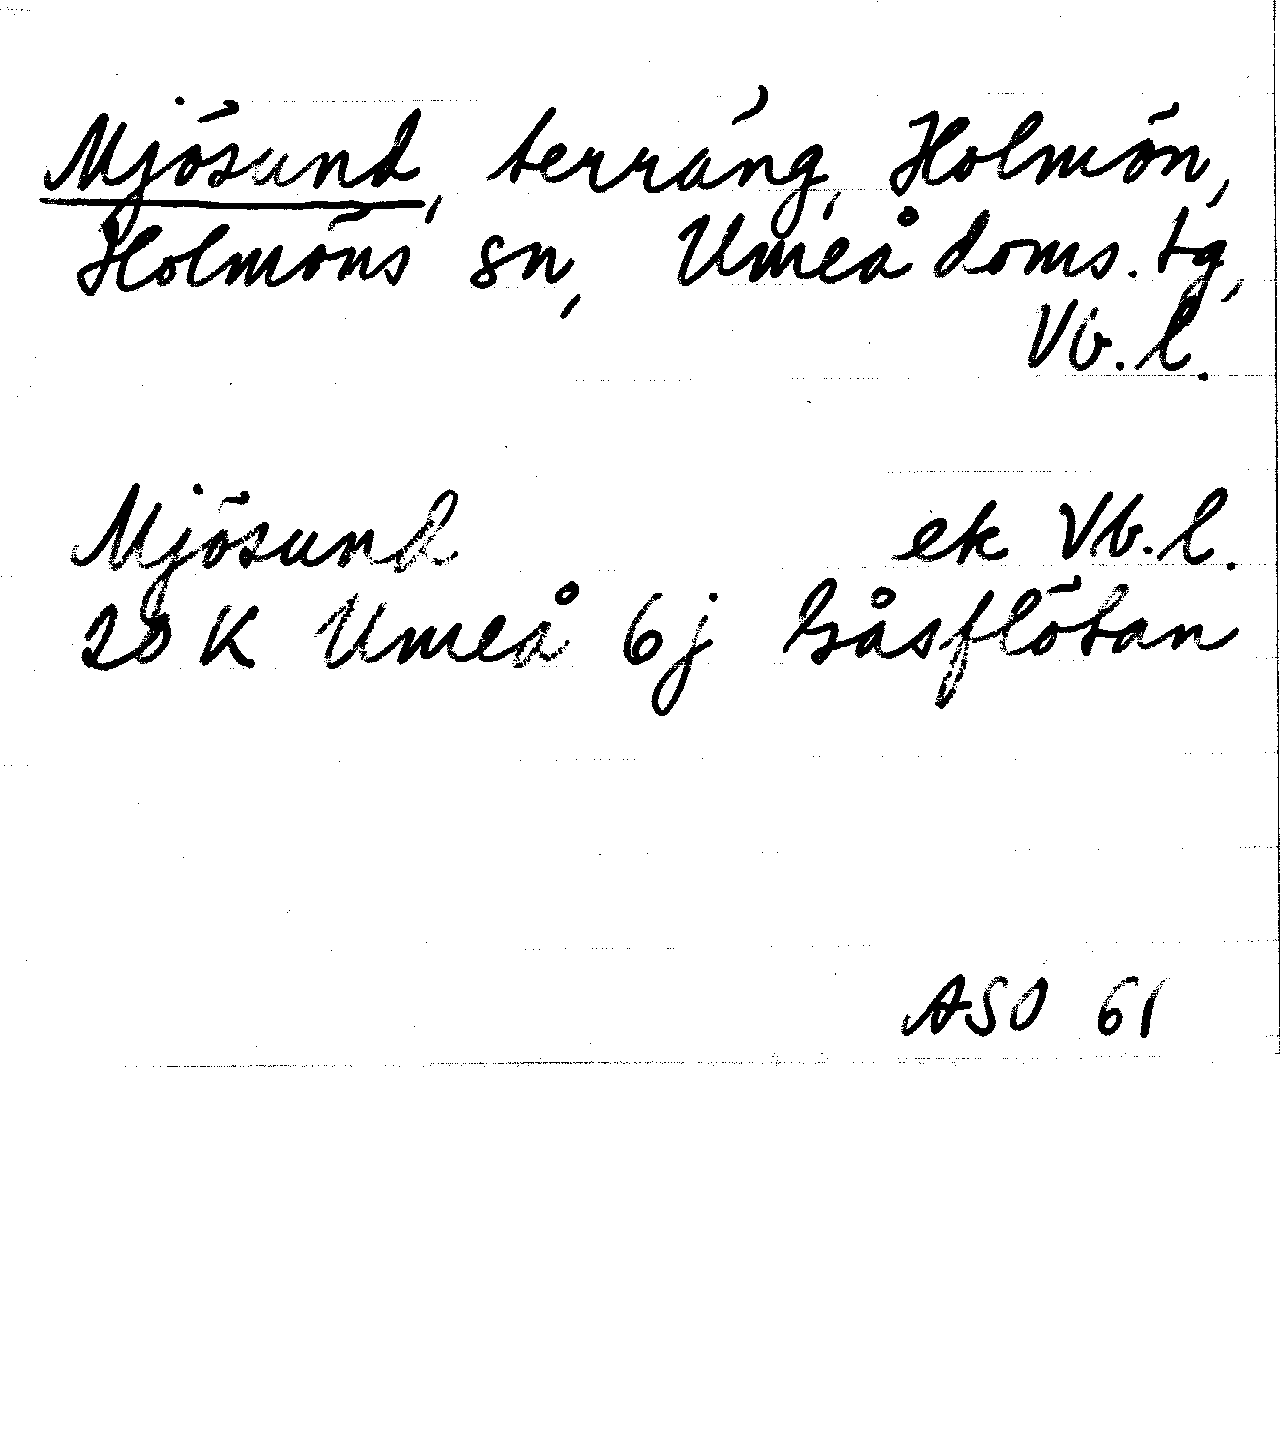 Mjösund, terräng, Holmön,
Holmöns sn, Umeå doms. tg,
Vb. l.
Mjösund ek Vb. l.
20 K Umeå 6j Gåsflötan
ASO 61